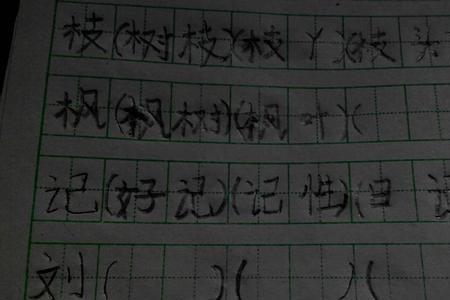 枝(树枝)(枝丫)(枝头
枫(枫树)(枫叶)(
记(好记)(记性)(日记
刘(  )(  )(